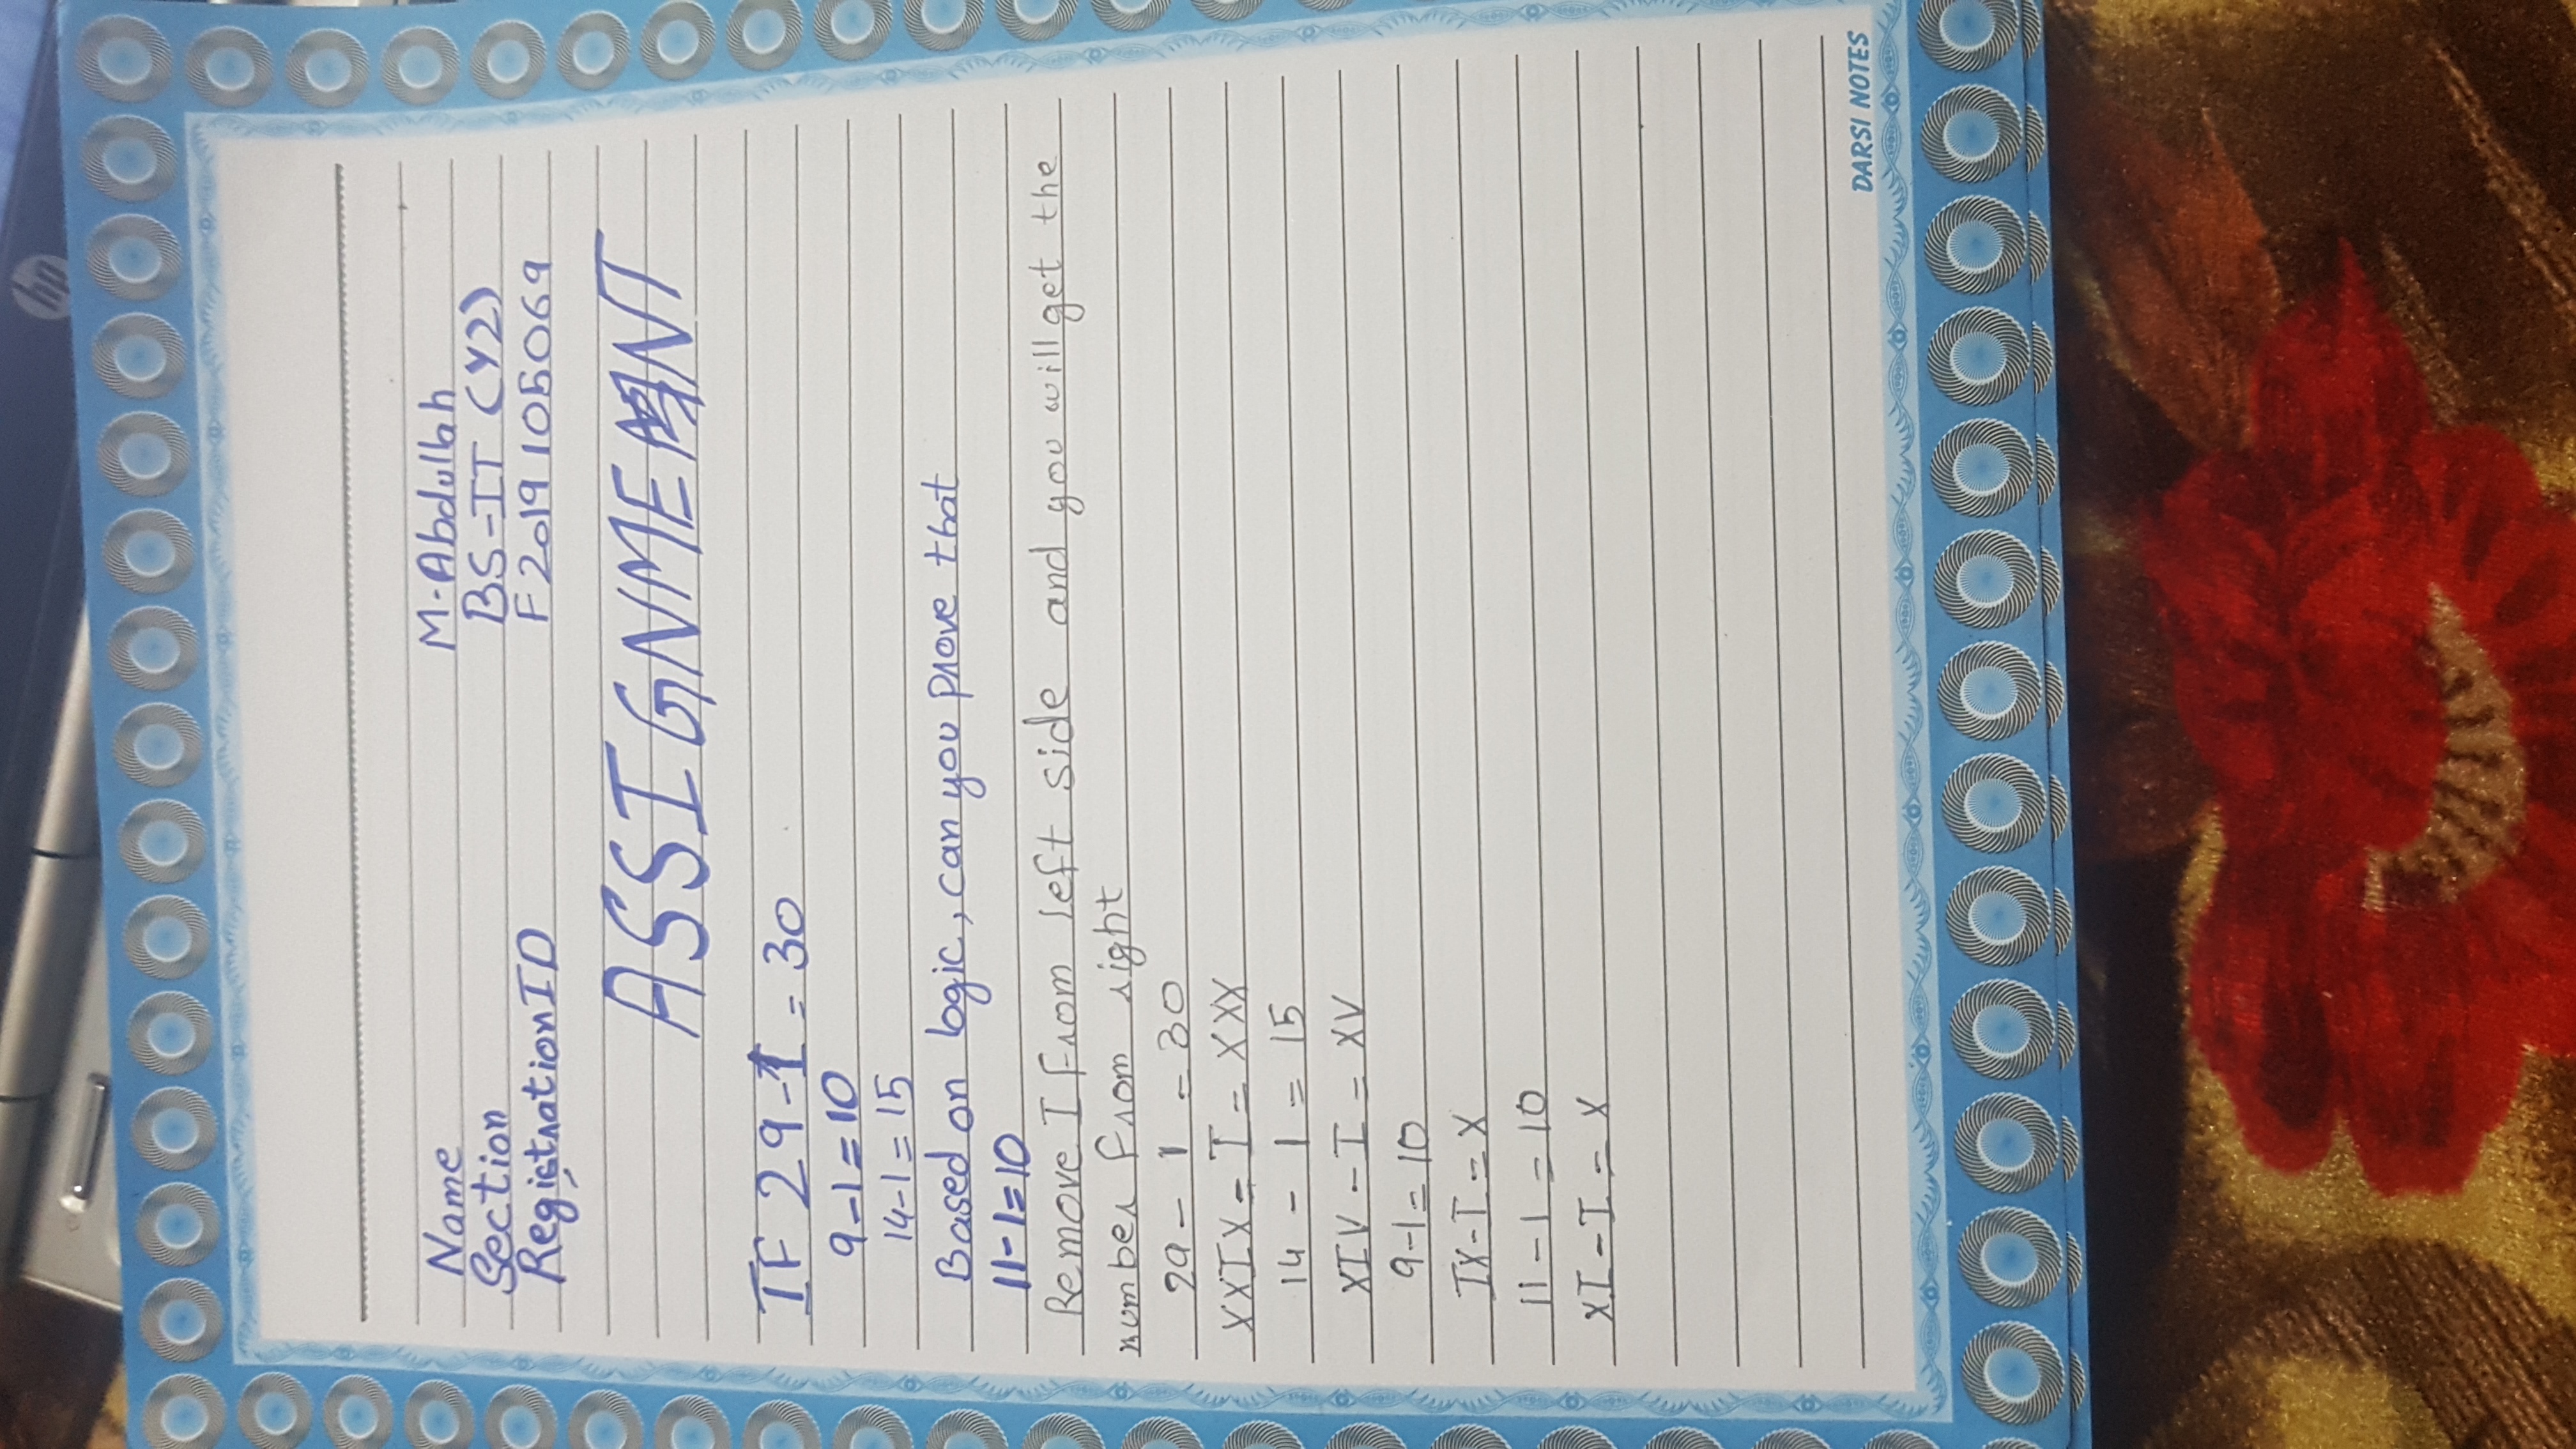 hp
Name M-Abdullah
Section BS-IT (Y2)
Registration ID F2019105069
ASSIGNMENT
IF 29-1 = 30
9-1=10
14-1=15
Based on logic, can you prove that
11-1=10
Remove I from left side and you will get the
number from right
29 - 1 = 30
XXIX = I = XXX
14 - 1 = 15
XIV - I = XV
9-1= 10
IX-I = X
11-1 = 10
XI-I = X
DARSI NOTES